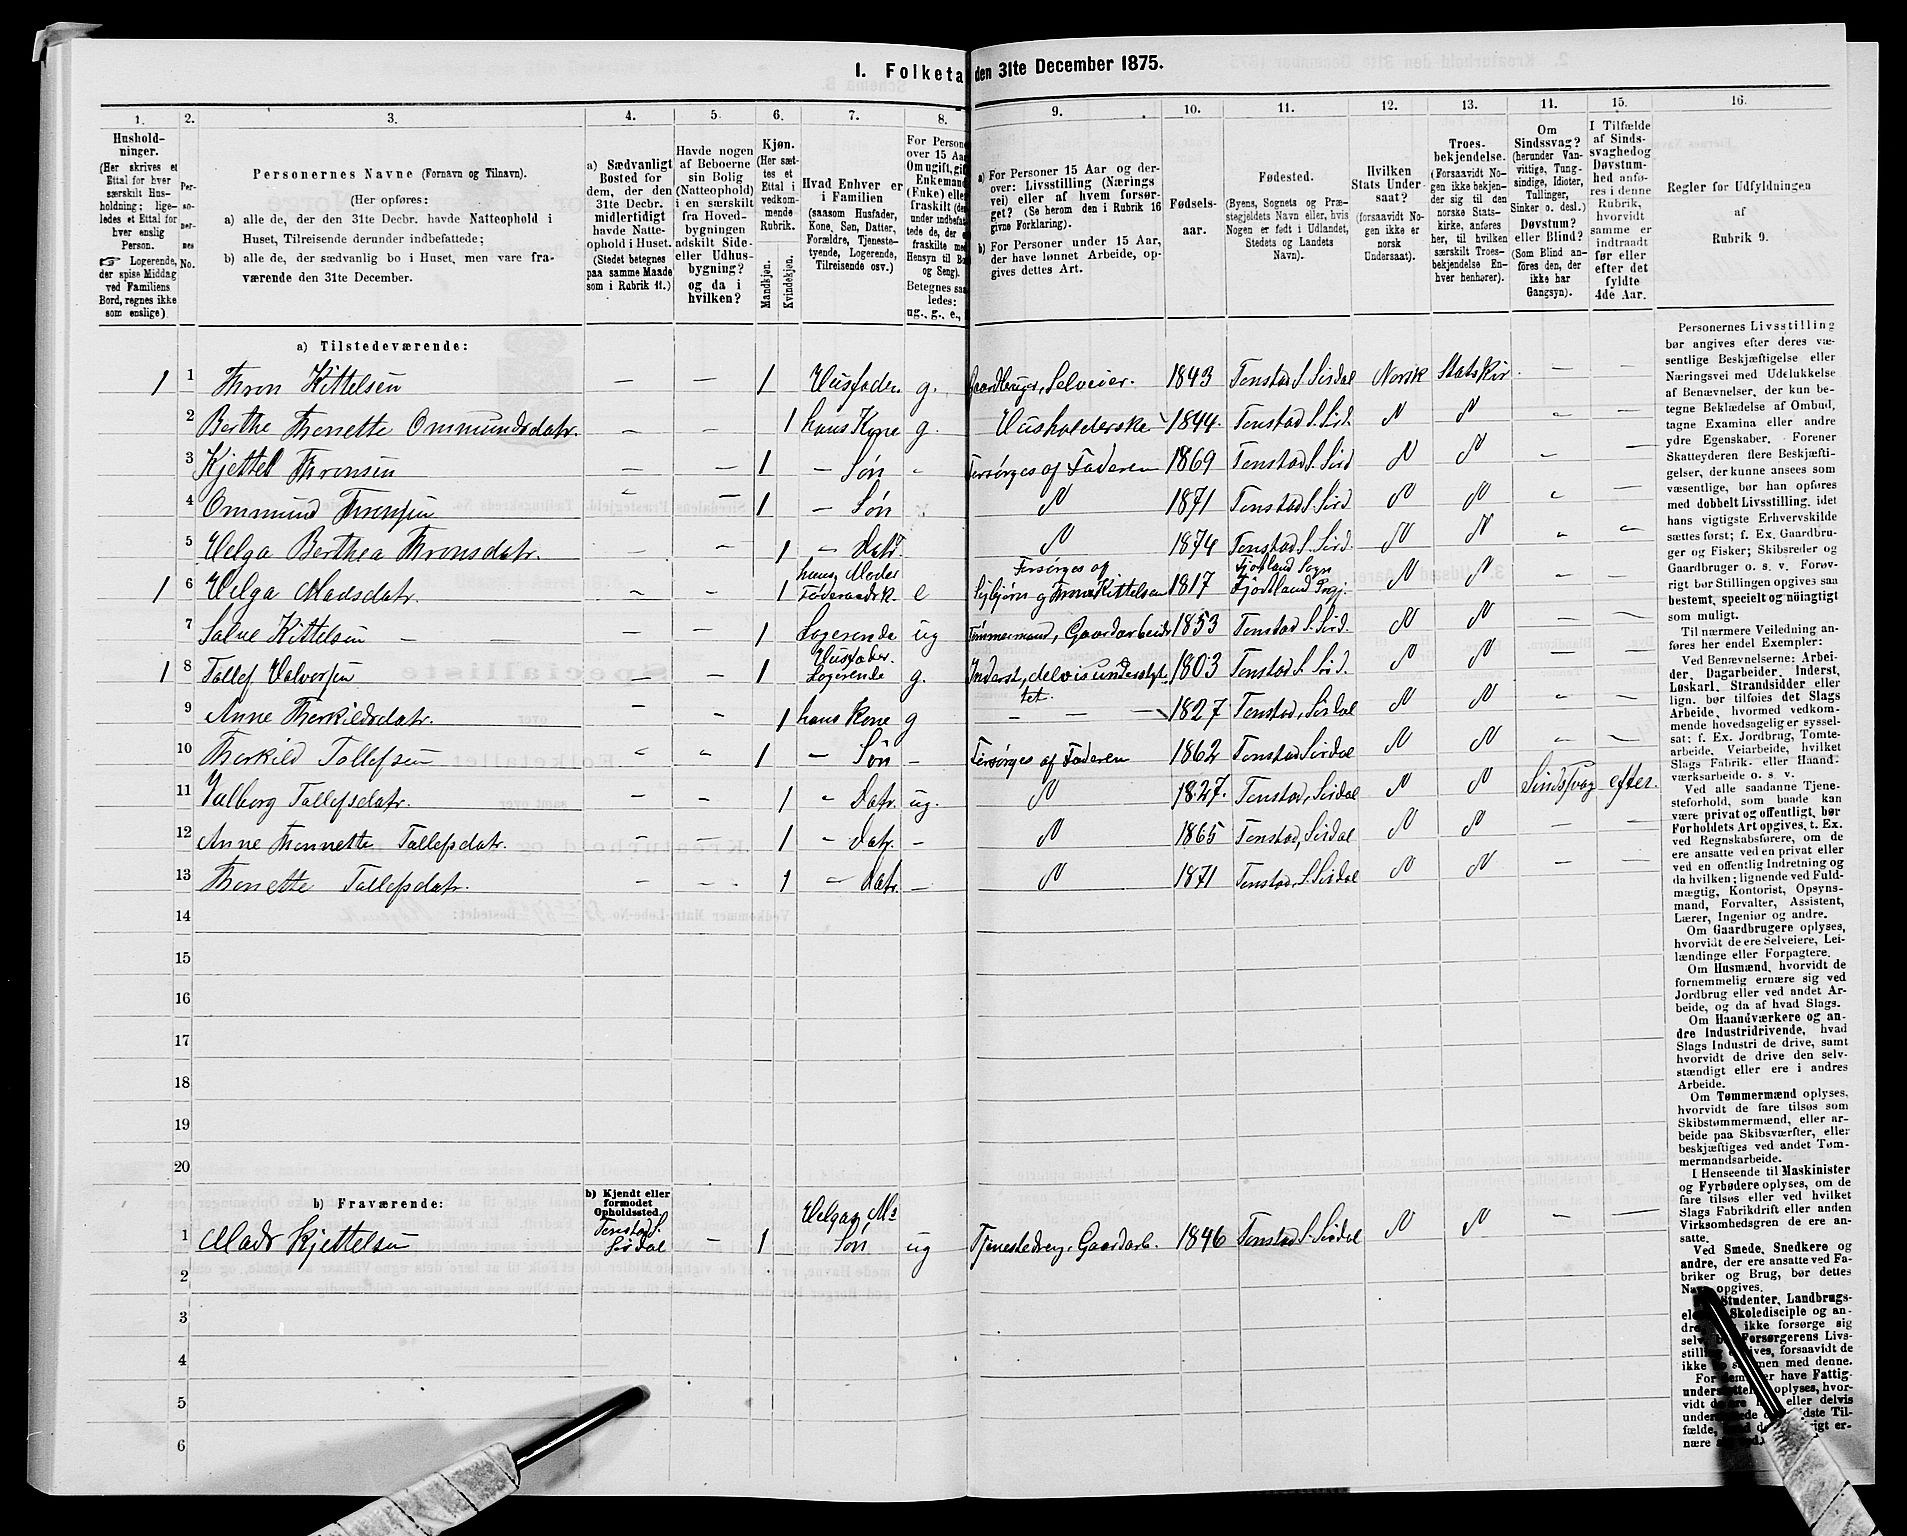 I. Folketa den 31te December 1875.
1. 2. 3. 4. 5. 6. 7. 8. 9. 10. 11. 12. 13. 14. 15. 16.
Hushold-
ninger.
(Her skrives et
Ettal for hver
særskilt Hus-
holdning; lige-
ledes et Ettal for
hver enslig
Person.
☞ Logerende,
der spise Middag
ved Familiens
Bord, regnes ikke
som enslige)
Per-
so-
ner-
nes
No.
Personernes Navne (Fornavn og Tilnavn).
(Her opføres:
a) alle de, der den 31te Decbr. havde Natteophold i
Huset, Tilreisende derunder indbefattede;
b) alle de, der sædvanlig bo i Huset, men vare fra-
værende den 31te December.
a) Sædvanligt
Bosted for
dem, der den
31te Decbr.
midlertidigt
havde Natte-
ophold i Huset.
(Stedet betegnes
paa samme Maade
som i Rubrik 11.)
Havde nogen
af Beboerne
sin Bolig
(Natteophold)
i en særskilt
fra Hoved-
bygningen
adskilt Side-
eller Udhus-
bygning?
og da i
hvilken?
Kjøn.
(Her sæt-
tes et
Ettal i
vedkom-
mende
Rubrik.
Mandkjøn.
Kvindekjøn.
Hvad Enhver er
i Familien
(saasom Husfader,
Kone, Søn, Datter,
Forældre, Tjeneste-
tyende, Logerende,
Tilreisende osv.)
For Person
over 15 Aa
Om ugift, gif
Enkemand
(Enke) elle
fraskilt (de
under indbefat
tede de, der e
fraskilte me
Hensyn til Bo
og Seng).
Betegnes saa
ledes:
ug., g., e.,
a) For Personer 15 Aar og der-
over: Livsstilling (Nærings
vei) eller af hvem forsør-
get? (Se herom den i Rubrik 16
givne Forklaring).
b) For Personer under 15 Aar,
der have lønnet Arbeide, op-
gives dettes Art.
Fødsels-
aar.
Fødested.
(Byens, Sognets og Præ-
stegjeldets Navn eller, hvis
Nogen er født i Udlandet,
Stedets og Landets
Navn).
Hvilken
Stats Under-
saat?
(forsaavidt No-
gen ikke er
norsk
Undersaat).
Troes-
bekjendelse.
(Forsaavidt No-
gen ikke bekjen-
der sig til den
norske Stats-
kirke, anføres
her, til hvilken
særskilt Troes-
bekjendelse En-
hver henhører).
Om
Sindssvag?
(herunder Van-
vittige, Tung-
sindige, Idioter,
Tullinger,
Sinker o. desl.)
Døvstum?
eller Blind?
(Som Blind an-
føres den, der
ikke har
Gangsyn).
I Tilfælde
af Sinds-
svaghed og
Døvstum-
hed anfø-
res i denne
Rubrik,
hvorvidt
samme er
indtraadt
før eller
efter det
fyldte
4de Aar.
Regler for Udfyldningen
af
Rubrik 9.
a) Tilstedeværende:
1 1 Thron Kittelsen — — 1 Husfader g. Gaardbruger, Selveier. 1843 Tonstad S. Sirdal Norsk Statskir. — —
2 Berthe Thonette Ommundsdatr. — — 1 hans Kone g. Husholderske 1844. Tonstad S. Sird. " " — —
3 Kjettel Thronsen — — 1 — Søn - Forsørges af Faderen 1869 Tonstad S. Sird " " — —
4 Ommund Thronsen — — 1 — Søn " 1871 Tonstad S. Sird " " — —
5 Helga Berthea Thronsdatr. — — 1 — Datr. " 1874 Tonstad S. Sird. " " — —
1 6 Helga Madsdatr. — — 1 hans Moder Føderaadsk. e Forsørges af Sigbjørn og Thron Kittelsen 1817 Fjotland Sogn Fjotland Prgj. " " — —
7 Salve Kittelsen — — 1 Logerende ug Tømmermand, Gaardarbeide 1853 Tonstad S. Sird. " " — —
1 8 Tallef Halvorsen — — 1 Husfader. Logerende g. Inderst, delvis understyt- tet. 1803 Tonstad S. Sird. " " — —
9 Anne Therkildsdatr. — — 1 hans Kone g — — — 1827 Tonstad, Sirdal " " — —
10 Therkild Tallefsen — — 1 — Søn — Forsørges af Faderen 1862 Tonstad Sirdal " " — —
11 Valborg Tallefsdatr. — — 1 — Datr. ug. " 1827. Tonstad, Sirdal " " Sindssvag efter.
12 Anne Thonnette Tallefsdatr. — — 1 — Datr. — " 1865 Tonstad, Sirdal " " — —
13 Thonette Tallefsdatr. — — 1 — Datr. — " 1871 Tonstad, S. Sirdal " " — —
14
15
16
17
18
19
20
b) Fraværende:
b) Kjendt eller
formodet
Opholdssted.
1 Mads Kjettelsen Tonstad S. Sirdal — 1 Helgas Ms Søn ug Tjenestedreng, Gaardarb. 1846 Tonstad S. Sirdal " " — —
2
3
4
5
6
Personernes Livsstilling
bør angives efter deres væ-
sentlige Beskjæftigelse eller
Næringsvei med Udelukkelse
af Benævnelser, der kun be-
tegne Beklædelse af Ombud,
tagne Examina eller andre
ydre Egenskaber. Forener
Skatteyderen flere Beskjæfti-
gelser, der kunne ansees som
væsentlige, bør han opføres
med dobbelt Livsstilling, idet
hans vigtigste Erhvervskilde
sættes først; f. Ex. Gaardbru-
ger og Fisker; Skibsreder og
Gaardbruger o. s. v. Forøv-
rigt bør Stillingen opgives saa
bestemt, specielt og nöingtigt
som muligt.
Til nærmere Veiledning an-
føres her endel Exempler:
Ved Benævnelserne: Arbei-
der, Dagarbeider, Inderst,
Løskarl, Strandsidder eller
lign. bør tilføies det Slags
Arbeide, hvormed vedkom-
mende hovedsagelig er syssel-
sat; f. Ex. Jordbrug, Tomte-
arbeide, Veiarbeide, hvilket
Slags Fabrik- eller Haand-
værksarbeide o. s. v.
Ved alle saadanne Tjene-
steforhold, som baade kan
være privat og offentligt, bør
Forholdets Art opgives, t. Ex.
ved Regnskabsførere, om de
ere ansatte ved en privat eller
ved en offentlig Indretning og
da hvilken; lignende ved Fuld-
mægtig, Kontorist, Opsyns-
mand, Forvalter, Assistent,
Lærer, Ingeniør og andre.
Om Gaardbrugere oplyses,
hvorvidt de ere Selveiere, Lei-
lændinge eller Forpagtere.
Om Husmænd, hvorvidt de
fornemmelig ernære sig ved
Jordbrug eller ved andet Ar-
beide, og da af hvad Slags.
Om Haandværkere og an-
dre Industridrivende, hvad
Slags Industri de drive, samt
hvorvidt de drive den selv-
stændigt eller ere i andres
Arbeide.
Om Tømmermænd oplyses,
hvorvidt de fare tilsøs som
Skibstømmermænd, eller ar-
beide paa Skibsværfter, eller
beskjæftiges ved andet Tøm-
mermandsarbeide.
I Henseende til Maskinister
og Fyrbødere oplyses, om de
fare tilsøs eller ved hvilket
Slags Fabrikdrift eller anden
Virksomhedsgren de ere an-
satte.
Ved Smede, Snedkere og
andre, der ere ansatte ved Fa-
briker og Brug, bør dettes
Navn opgives.
Studenter, Landbrugs-
Skoledisciple og an-
ikke forsørge sig
Forsørgerens Livs-
forsaavidt de
ikke men med denne.
For have Fattig-
oplyses, hvor-
eller delvis
Til-